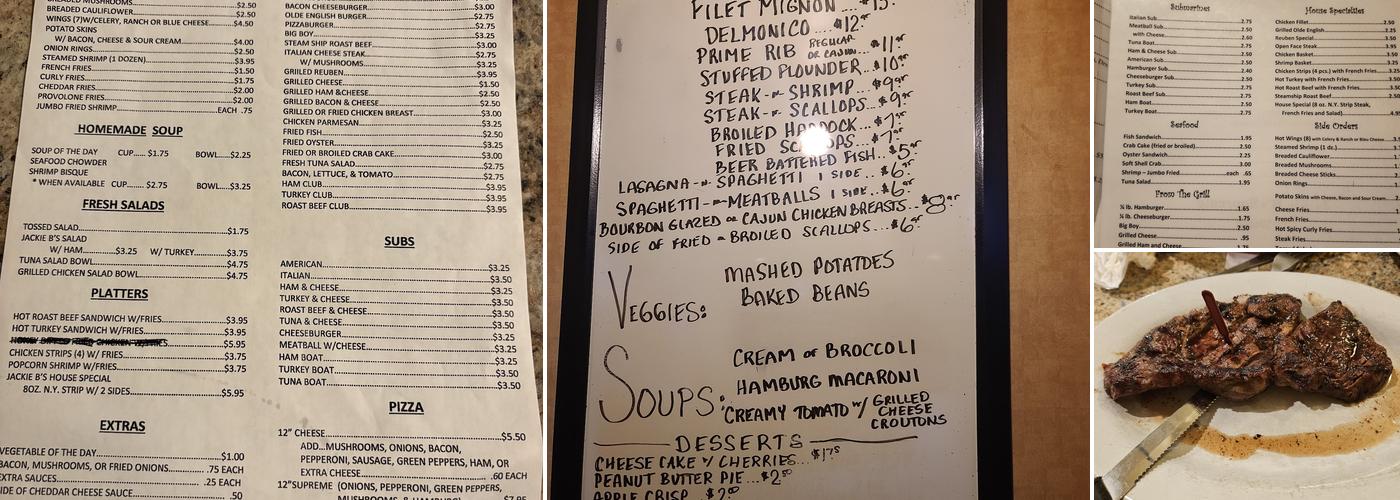 BREADED MUSHROOMS $2.50
BREADED CAULIFLOWER $2.50
WINGS (7)W/CELERY, RANCH OR BLUE CHEESE $4.50
POTATO SKINS
W/ BACON, CHEESE & SOUR CREAM $4.00
ONION RINGS $2.50
STEAMED SHRIMP (1 DOZEN) $3.95
FRENCH FRIES $1.50
CURLY FRIES $1.75
CHEDDAR FRIES $2.00
PROVOLONE FRIES $2.00
JUMBO FRIED SHRIMP EACH .75
HOMEMADE SOUP
SOUP OF THE DAY CUP..... $1.75 BOWL....$2.25
SEAFOOD CHOWDER
SHRIMP BISQUE
* WHEN AVAILABLE CUP..... $2.75 BOWL....$3.25
FRESH SALADS
TOSSED SALAD $1.75
JACKIE B'S SALAD
W/ HAM $3.25 W/ TURKEY $3.75
TUNA SALAD BOWL $4.75
GRILLED CHICKEN SALAD BOWL $4.75
PLATTERS
HOT ROAST BEEF SANDWICH W/FRIES $3.95
HOT TURKEY SANDWICH W/FRIES $3.95
$5.95
CHICKEN STRIPS (4) W/ FRIES $3.75
POPCORN SHRIMP W/FRIES $3.75
JACKIE B'S HOUSE SPECIAL
8OZ. N.Y. STRIP W/ 2 SIDES $5.95
EXTRAS
VEGETABLE OF THE DAY $1.00
BACON, MUSHROOMS, OR FRIED ONIONS .75 EACH
EXTRA SAUCES .25 EACH
SIDE OF CHEDDAR CHEESE SAUCE .50
BACON CHEESEBURGER $3.00
OLDE ENGLISH BURGER $2.75
PIZZABURGER $2.75
BIG BOY $3.25
STEAM SHIP ROAST BEEF $3.00
ITALIAN CHEESE STEAK $2.75
W/ MUSHROOMS $3.25
GRILLED REUBEN $3.95
GRILLED CHEESE $1.50
GRILLED HAM &CHEESE $2.50
GRILLED BACON & CHEESE $2.50
GRILLED OR FRIED CHICKEN BREAST $3.00
CHICKEN PARMESAN $3.25
FRIED FISH $2.50
FRIED OYSTER $3.25
FRIED OR BROILED CRAB CAKE $3.00
FRESH TUNA SALAD $2.75
BACON, LETTUCE, & TOMATO $2.75
HAM CLUB $3.95
TURKEY CLUB $3.95
ROAST BEEF CLUB $3.95
SUBS
AMERICAN $3.25
ITALIAN $3.50
HAM & CHEESE $3.25
TURKEY & CHEESE $3.50
ROAST BEEF & CHEESE $3.50
TUNA & CHEESE $3.50
CHEESEBURGER $3.25
MEATBALL W/CHEESE $3.25
HAM BOAT $3.25
TURKEY BOAT $3.50
ROAST BEEF BOAT $3.50
TUNA BOAT $3.50
PIZZA
12" CHEESE $5.50
ADD...MUSHROOMS, ONIONS, BACON,
PEPPERONI, SAUSAGE, GREEN PEPPERS, HAM, OR
EXTRA CHEESE .60 EACH
12"SUPREME (ONIONS, PEPPERONI, GREEN PEPPERS,
MUSHROOMS, & HAMBURG) $7.95
FILET MIGNON
DELMONICO
PRIME RIB REGULAR OR CAJUN
STUFFED FLOUNDER
STEAK -N- SHRIMP
STEAK -N- SCALLOPS
BROILED HADDOCK
FRIED SCALLOPS
BEER BATTERED FISH
LASAGNA -N- SPAGHETTI 1 SIDE
SPAGHETTI -N- MEATBALLS 1 SIDE
BOURBON GLAZED OR CAJUN CHICKEN BREASTS
SIDE OF FRIED OR BROILED SCALLOPS
VEGGIES:
MASHED POTATOES
BAKED BEANS
SOUPS:
CREAM OF BROCCOLI
HAMBURG MACARONI
CREAMY TOMATO W/ GRILLED CHEESE CROUTONS
DESSERTS
CHEESE CAKE W/ CHERRIES $1.75
PEANUT BUTTER PIE $2.50
APPLE CRISP
Submarines
Italian Sub 2.75
Meatball Sub
with Cheese 2.60
Tuna Boat 2.75
Ham & Cheese Sub 2.50
American Sub 2.50
Hamburger Sub 2.40
Cheeseburger Sub 2.50
Turkey Sub 2.75
Roast Beef Sub 2.75
Ham Boat 2.50
Turkey Boat 2.75
Seafood
Fish Sandwich 1.95
Crab Cake (fried or broiled) 2.50
Oyster Sandwich 2.25
Soft Shell Crab 3.00
Shrimp – Jumbo Fried each .65
Tuna Salad 1.95
From The Grill
¼ lb. Hamburger 1.65
¼ lb. Cheeseburger 1.75
Big Boy 2.50
Grilled Cheese .95
Grilled Ham and Cheese
House Specialties
Chicken Fillet 2.50
Grilled Olde English 2.25
Reuben Special
Open Face Steak
Chicken Basket
Shrimp Basket
Chicken Strips (4 pcs.) with French Fries
Hot Turkey with French Fries
Hot Roast Beef with French Fries
Steamship Roast Beef
House Special (8 oz. N.Y. Strip Steak,
French Fries and Salad)
Side Orders
Hot Wings (8) with Celery & Ranch or Bleu Cheese
Steamed Shrimp (1 dz.)
Breaded Cauliflower
Breaded Mushrooms
Breaded Cheese Sticks
Onion Rings
Potato Skins with Cheese, Bacon and Sour Cream
Cheese Fries
French Fries
Hot Spicy Curly Fries
Steak Fries